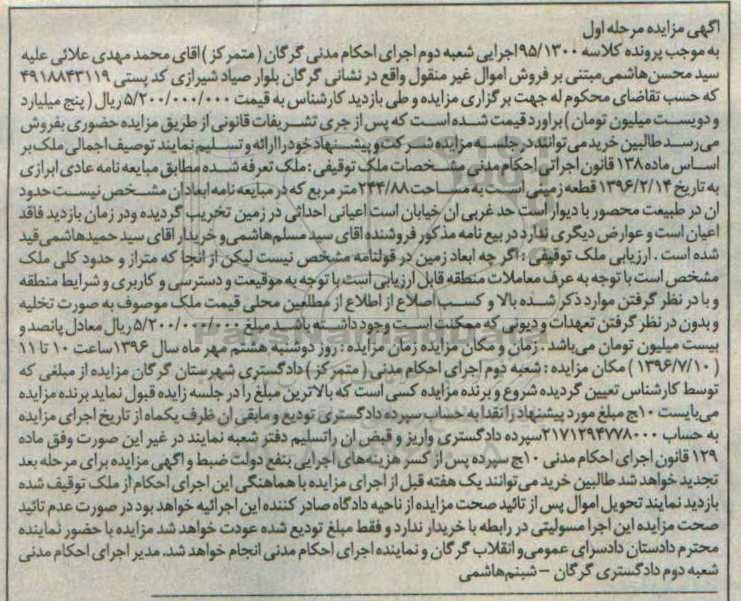 آگهی مزایده مرحله اول
به موجب پرونده کلاسه ۹۵/۱۳۰۰ اجرایی شعبه دوم اجرای احکام مدنی گرگان ( متمرکز ) آقای محمد مهدی علائی علیه
سید محسن هاشمی مبتنی بر فروش اموال غیر منقول واقع در نشانی گرگان بلوار صیاد شیرازی کد پستی ۴۹۱۸۸۴۳۱۱۹
که حسب تقاضای محکوم له جهت برگزاری مزایده و طی بازدید کارشناس به قیمت ۵/۲۰۰/۰۰۰/۰۰۰ ریال ( پنج میلیارد
و دویست میلیون تومان ) براورد قیمت شده است که پس از جری تشریفات قانونی از طریق مزایده حضوری بفروش
می رسد طالبین خرید می توانند در جلسه مزایده شرکت و پیشنهاد خود را ارائه و تسلیم نمایند توصیف اجمالی ملک بر
اساس ماده ۱۳۸ قانون اجرائی احکام مدنی مشخصات ملک توقیفی : ملک تعرفه شده مطابق مبایعه نامه عادی ابرازی
به تاریخ ۱۳۹۶/۲/۱۴ قطعه زمینی است به مساحت ۲۴۴/۸۸ متر مربع که در مبایعه نامه ابعاد ان مشخص نیست حدود
ان در طبیعت محصور با دیوار است حد غربی ان خیابان است اعیانی احداثی در زمین تخریب گردیده ودر زمان بازدید فاقد
اعیان است و عوارض دیگری ندارد در بیع نامه مذکور فروشنده اقای سید مسلم هاشمی و خریدار اقای سید حمید هاشمی قید
شده است . ارزیابی ملک توقیفی : اگر چه ابعاد زمین در قولنامه مشخص نیست لیکن از آنجا که متراژ و حدود کلی ملک
مشخص است با توجه به عرف معاملات منطقه قابل ارزیابی است با توجه به موقیعت و دسترسی و کاربری و شرایط منطقه
و با در نظر گرفتن موارد ذکر شده بالا و کسب اصلاع از اطلاع از مطلعین محلی قیمت ملک موصوف به صورت تخلیه
و بدون در نظر گرفتن تعهدات و دیونی که ممکنت است وجود داشته باشد مبلغ ۵/۲۰۰/۰۰۰/۰۰۰ ریال معادل پانصد و
بیست میلیون تومان می باشد . زمان و مکان مزایده زمان مزایده : روز دوشنبه هشتم مهر ماه سال ۱۳۹۶ ساعت ۱۰ تا ۱۱
( ۱۳۹۶/۷/۱۰ ) مکان مزایده : شعبه دوم اجرای احکام مدنی ( متمرکز ) دادگستری شهرستان گرگان مزایده از مبلغی که
توسط کارشناس تعیین گردیده شروع و برنده مزایده کسی است که بالاترین مبلغ را در جلسه زایده قبول نماید برنده مزایده
می بایست ۱۰ج مبلغ مورد پیشنهاد را نقدا به حساب سپرده دادگستری تودیع و مابقی ان ظرف یکماه از تاریخ اجرای مزایده
به حساب ۲۱۷۱۲۹۴۷۷۸۰۰۰ سپرده دادگستری واریز و قبض ان راتسلیم دفتر شعبه نمایند در غیر این صورت وفق ماده
۱۲۹ قانون اجرای احکام مدنی ۱۰ج سپرده پس از کسر هزینه های اجرایی بنفع دولت ضبط و اگهی مزایده برای مرحله بعد
تجدید خواهد شد طالبین خرید می توانند یک هفته قبل از اجرای مزایده با هماهنگی این اجرای احکام از ملک توقیف شده
بازدید نمایند تحویل اموال پس از تائید صحت مزایده از ناحیه دادگاه صادر کننده این اجرائیه خواهد بود در صورت عدم تائید
صحت مزایده این اجرا مسولیتی در رابطه با خریدار ندارد و فقط مبلغ تودیع شده عودت خواهد شد مزایده با حضور نماینده
محترم دادستان دادسرای عمومی و انقلاب گرگان و نماینده اجرای احکام مدنی انجام خواهد شد. مدیر اجرای احکام مدنی
شعبه دوم دادگستری گرگان – شبنم هاشمی